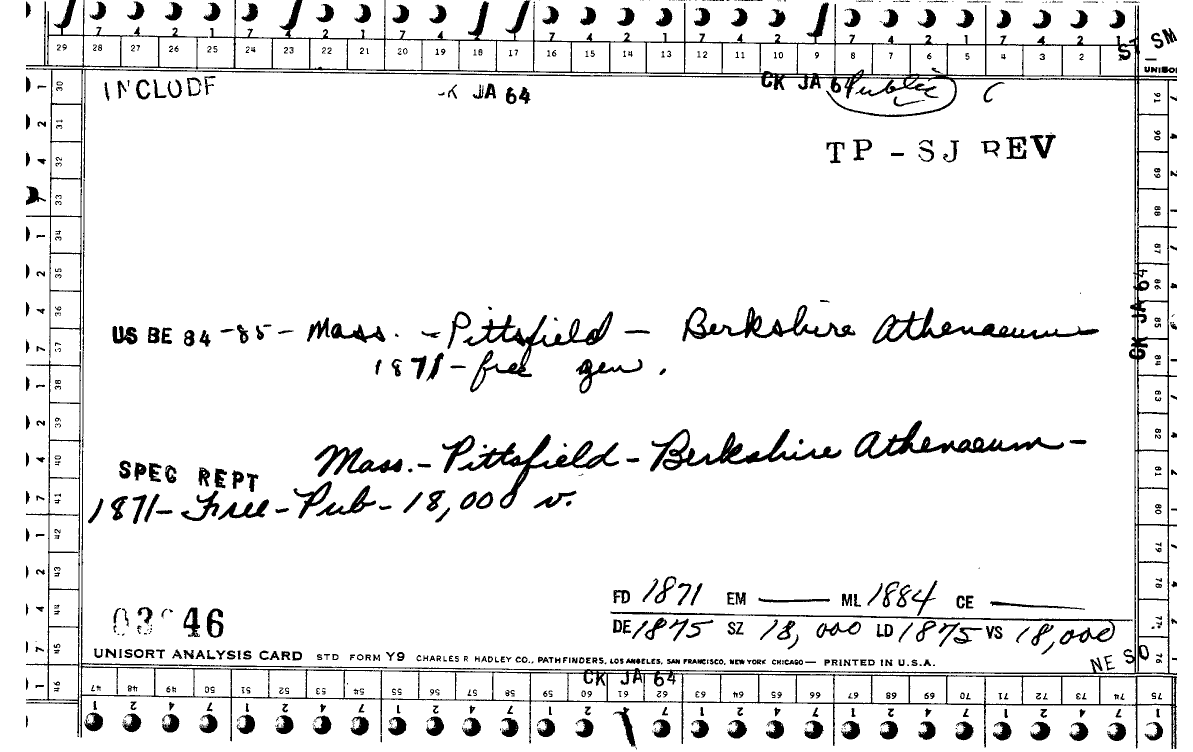 7 4 2 1 7 4 2 1 7 4 2 1 7 4 2 1 7 4 2 1 7 4 2
29 28 27 26 25 24 23 22 21 20 19 18 17 16 15 14 13 12 11 10 9 8 7 6 5 4 3 2
INCLUDE CK JA 64 CK JA 64 Public
TP - SJ REV
US BE 84-85 - Mass. - Pittsfield - Berkshire Athenaeum
1871 - free gen.
SPEC REPT Mass. - Pittsfield - Berkshire Athenaeum -
1871 - Free - Pub - 18,000 v.
FD 1871 EM — ML 1884 CE —
46
DE 1875 SZ 18,000 LD 1875 VS 18,000
UNISORT ANALYSIS CARD STD FORM Y9 CHARLES R HADLEY CO., PATHFINDERS, LOS ANGELES, SAN FRANCISCO, NEW YORK CHICAGO — PRINTED IN U.S.A.
NE SO
CK JA 64
47 48 49 50 51 52 53 54 55 56 57 58 59 60 61 62 63 64 65 66 67 68 69 70 71 72 73 74 75
30 31 32 33 34 35 36 37 38 39 40 41 42 43 44 45 46
91 90 89 88 87 86 85 84 83 82 81 80 79 78 77 76
CK JA 64